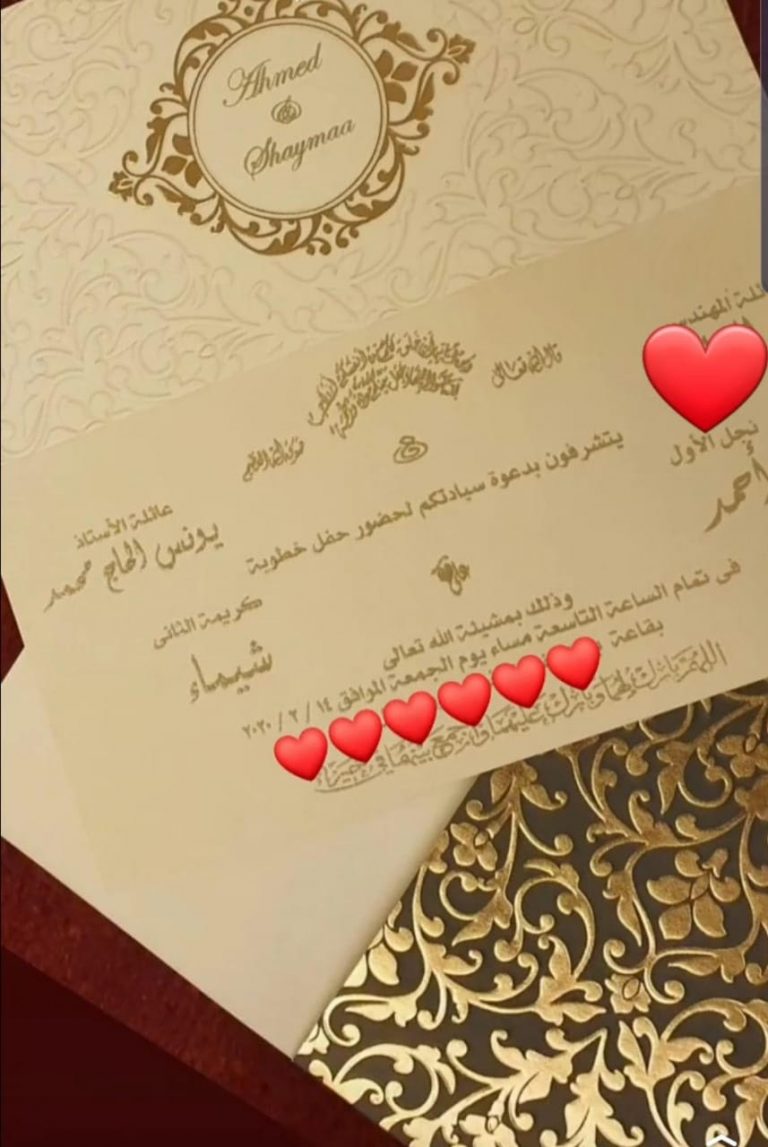 Ahmed
&
Shaymaa
قال الله تعالى
صدق الله العظيم
عائلة المهندس
عائلة الأستاذ
يونس الحاج محمد
يتشرفون بدعوة سيادتكم لحضور حفل خطوبة
نجل الأول
أحمد
كريمة الثانى
شيماء
على
وذلك بمشيئة الله تعالى
فى تمام الساعة التاسعة مساء يوم الجمعة الموافق ١٤ / ٢ / ٢٠٢٠
بقاعة
اللهم بارك لهما وبارك عليهما واجمع بينهما في خير